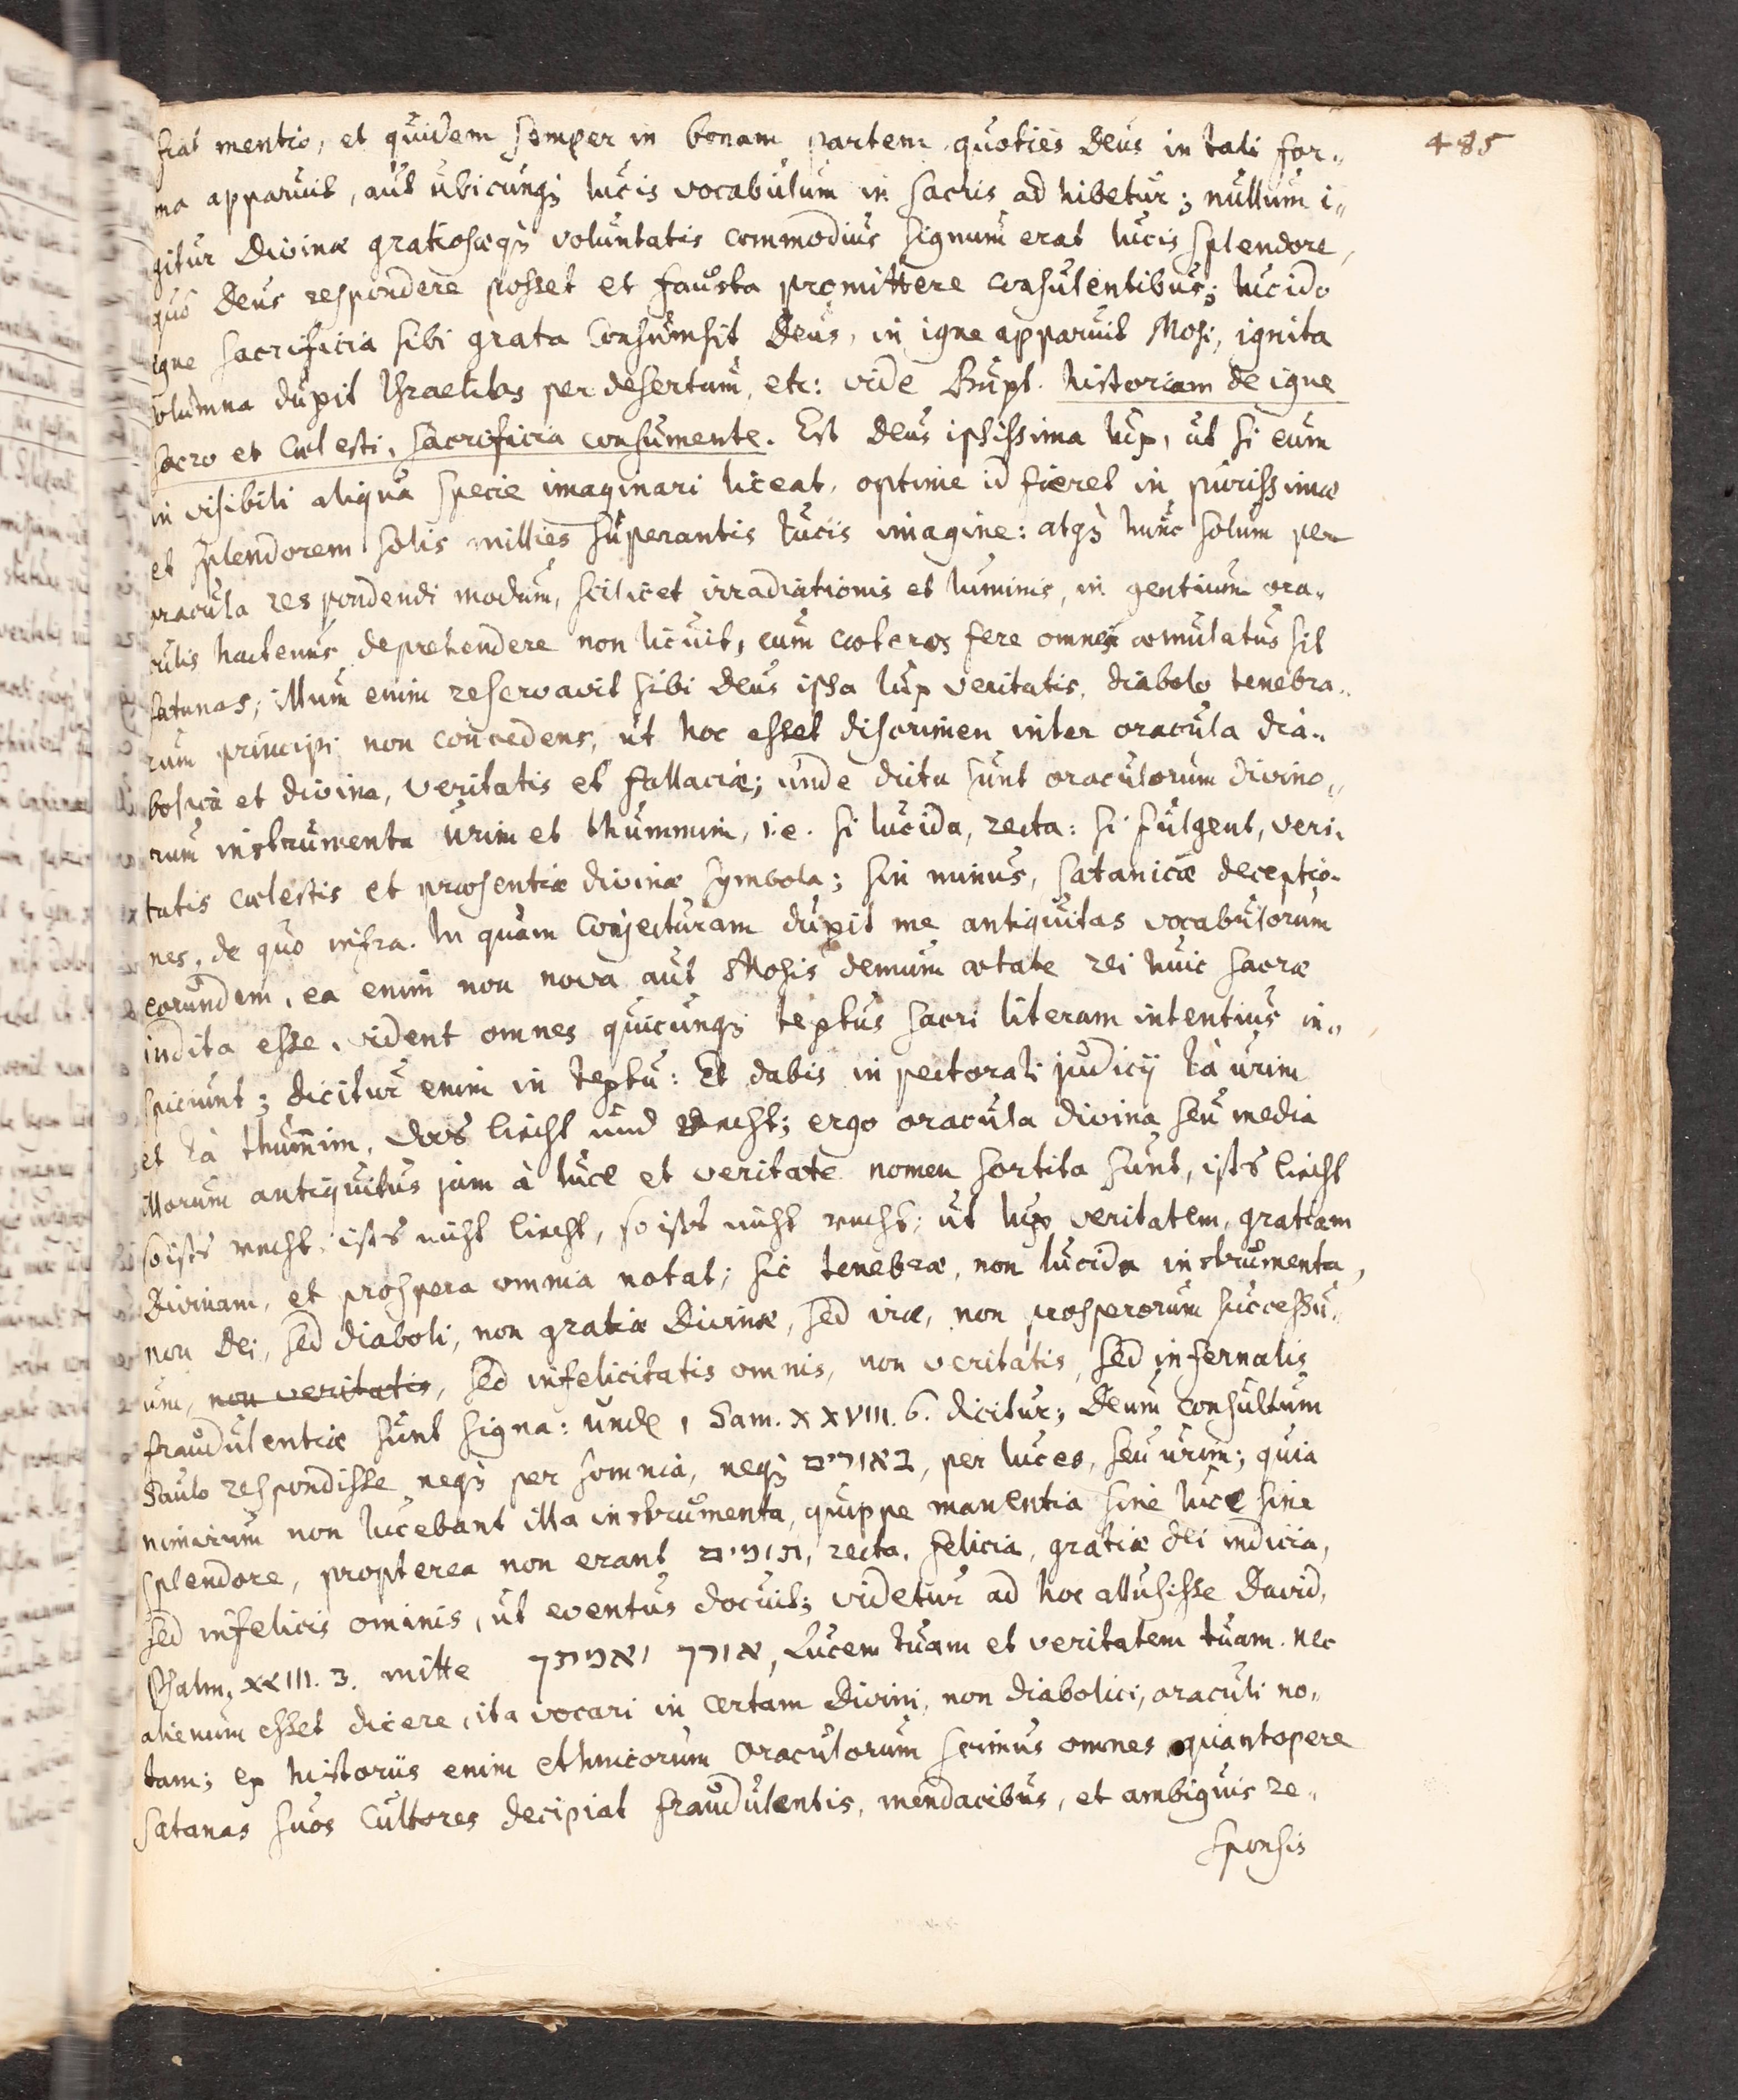 485
fiat mentio, et quidem semper in bonam partem quoties Deus in tali for„
ma apparuit, aut ubicunq; lucis vocabulum in sacris adhibetur; nullum i„
gitur Divinæ gratiosæq; voluntatis commodius signum erat lucis splendore,
quô Deus respondere posset et fausta promittere consulentibus; lucido
igne sacrificia sibi grata consumsit Deus, in igne apparuit Mosi, ignita
columna duxit Israelitas per desertum, etc: vide Buxt. historiam de igne
sacro et cœlesti, sacrificia consumente. Est Deus ipsissima lux, ut si eum
in visibili aliqua specie imaginari liceat, optime id fieret in purissimæ
et splendorem solis millies superantis lucis imagine: atq; hunc solum per
oracula respondendi modum, scilicet irradiationis et luminis, in gentium ora„
culis hactenus deprehendere non licuit, cum cæteros fere omnes æmulatus sit
satanas; illum enim reservavit sibi Deus ipsa lux veritatis, diabolo tenebra„
rum principi non concedens, ut hoc esset discrimen inter oracula dia„
bolica et divina, veritatis et fallaciæ; unde dicta sunt oraculorum divino„
rum instrumenta urim et thummim, i.e. si lucida, recta: si fulgent, veri„
tatis cœlestis et præsentiæ divinæ symbola; sin minus, satanicæ deceptio„
nes, de quo infra. In quam conjecturam duxit me antiquitas vocabulorum
eorundem, ea enim non nova aut Mosis demum ætate rei huic sacræ
indita esse, vident omnes quicunq; textus sacri literam intentius in„
spiciunt; dicitur enim in textu: Et dabis in pectorali judicij tà urim
et tà thummim, das liecht und recht; ergo oracula divina seu media
illorum antiquitus jam à luce et veritate nomen sortita sunt, ists liecht
so ists recht, ists nicht liecht, so ists nicht recht; ut lux veritatem, gratiam
Divinam, et prospera omnia notat; sic tenebræ, non lucida instrumenta,
non Dei, sed diaboli, non gratiæ Divinæ, sed iræ, non prosperorum successu„
um, non veritatis, sed infelicitatis omnis, non veritatis, sed infernalis
fraudulentiæ sunt signa: unde 1 Sam. XXVIII. 6. dicitur; Deum consultum
Saulo respondisse neq; per somnia, neq; באורים, per luces, seu urim; quia
nimirum non lucebant illa instrumenta, quippe manentia sine luce sine
splendore, propterea non erant תומים, recta, felicia, gratiæ dei indicia,
sed infelicis ominis, ut eventus docuit; videtur ad hoc allusisse David,
Psalm. XXIII. 3. mitte אורך ואמיתך, Lucem tuam et veritatem tuam. nec
alienum esset dicere, ita vocari in certam Divini, non diabolici, oraculi no„
tam; ex historiis enim ethnicorum oraculorum scimus omnes quantopere
satanas suos cultores decipiat fraudulentis, mendacibus, et ambiguis re„
sponsis